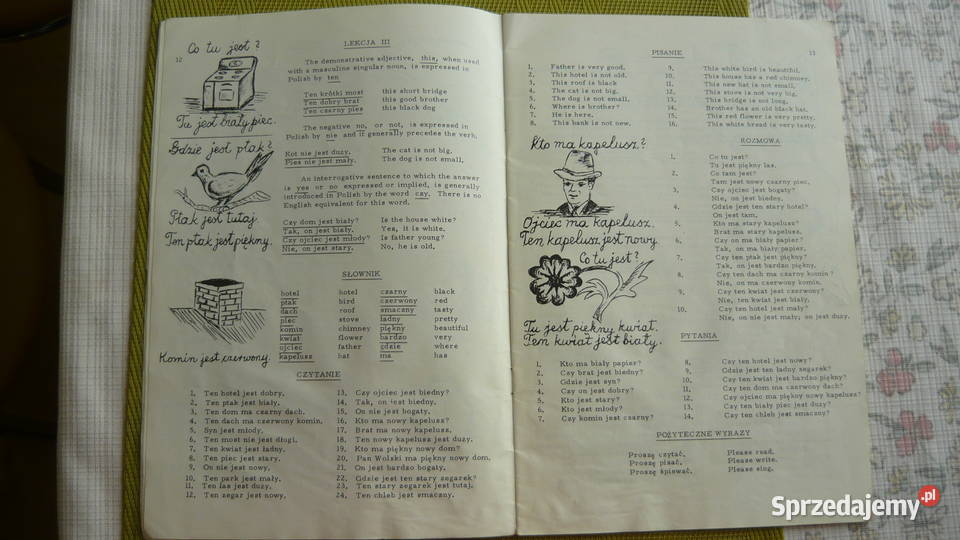 12
Co tu jest?
Tu jest biały piec.
Gdzie jest ptak?
Ptak jest tutaj.
Ten ptak jest piękny.
Komin jest czerwony.
LEKCJA III
The demonstrative adjective, this, when used
with a masculine singular noun, is expressed in
Polish by ten
Ten krótki most this short bridge
Ten dobry brat this good brother
Ten czarny pies this black dog
The negative no, or not, is expressed in
Polish by nie and it generally precedes the verb.
Kot nie jest duży. The cat is not big.
Pies nie jest mały. The dog is not small.
An interrogative sentence to which the answer
is yes or no expressed or implied, is generally
introduced in Polish by the word czy. There is no
English equivalent for this word.
Czy dom jest biały? Is the house white?
Tak, on jest biały. Yes, it is white.
Czy ojciec jest młody? Is father young?
Nie, on jest stary. No, he is old.
SŁOWNIK
hotel hotel czarny black
ptak bird czerwony red
dach roof smaczny tasty
piec stove ładny pretty
komin chimney piękny beautiful
kwiat flower bardzo very
ojciec father gdzie where
kapelusz hat ma has
CZYTANIE
1. Ten hotel jest dobry.
2. Ten ptak jest biały.
3. Ten dom ma czarny dach.
4. Ten dach ma czerwony komin.
5. Syn jest młody.
6. Ten most nie jest długi.
7. Ten kwiat jest ładny.
8. Ten piec jest stary.
9. On nie jest nowy.
10. Ten park jest mały.
11. Ten las jest duży.
12. Ten zegar jest nowy.
13. Czy ojciec jest biedny?
14. Tak, on jest biedny.
15. On nie jest bogaty.
16. Kto ma nowy kapelusz?
17. Brat ma nowy kapelusz.
18. Ten nowy kapelusz jest duży.
19. Kto ma piękny nowy dom?
20. Pan Wolski ma piękny nowy dom.
21. On jest bardzo bogaty.
22. Gdzie jest ten stary zegarek?
23. Ten stary zegarek jest tutaj.
24. Ten chleb jest smaczny.
13
PISANIE
1. Father is very good.
2. This hotel is not old.
3. This roof is black
4. The cat is not big.
5. The dog is not small.
6. Where is brother?
7. He is here.
8. This bank is not new.
9. This white bird is beautiful.
10. This house has a red chimney.
11. This new hat is not small.
12. This stove is not very big.
13. This bridge is not long.
14. Brother has an old black hat.
15. This red flower is very pretty.
16. This white bread is very tasty.
Kto ma kapelusz?
Ojciec ma kapelusz.
Ten kapelusz jest nowy.
Co tu jest?
Tu jest piękny kwiat.
Ten kwiat jest biały.
ROZMOWA
1. Co tu jest?
Tu jest piękny las.
2. Co tam jest?
Tam jest nowy czarny piec.
3. Czy ojciec jest bogaty?
Nie, on jest biedny.
4. Gdzie jest ten stary hotel?
On jest tam.
5. Kto ma stary kapelusz?
Brat ma stary kapelusz.
6. Czy on ma biały papier?
Tak, on ma biały papier.
7. Czy ten ptak jest piękny?
Tak, on jest bardzo piękny.
8. Czy ten dach ma czarny komin?
Nie, on ma czerwony komin.
9. Czy ten kwiat jest czerwony?
Nie, ten kwiat jest biały.
10. Czy ten hotel jest mały?
Nie, on nie jest mały; on jest duży.
PYTANIA
1. Kto ma biały papier?
2. Czy brat jest biedny?
3. Gdzie jest syn?
4. Czy on jest dobry?
5. Kto jest stary?
6. Kto jest młody?
7. Czy komin jest czarny?
8. Czy ten hotel jest nowy?
9. Gdzie jest ten ładny zegarek?
10. Czy ten kwiat jest bardzo piękny?
11. Czy ten dom ma czerwony dach?
12. Czy ojciec ma piękny nowy kapelusz?
13. Czy ten biały piec jest duży?
14. Czy ten chleb jest smaczny?
POŻYTECZNE WYRAZY
Proszę czytać. Please read.
Proszę pisać. Please write.
Proszę śpiewać. Please sing.
Sprzedajemy.pl